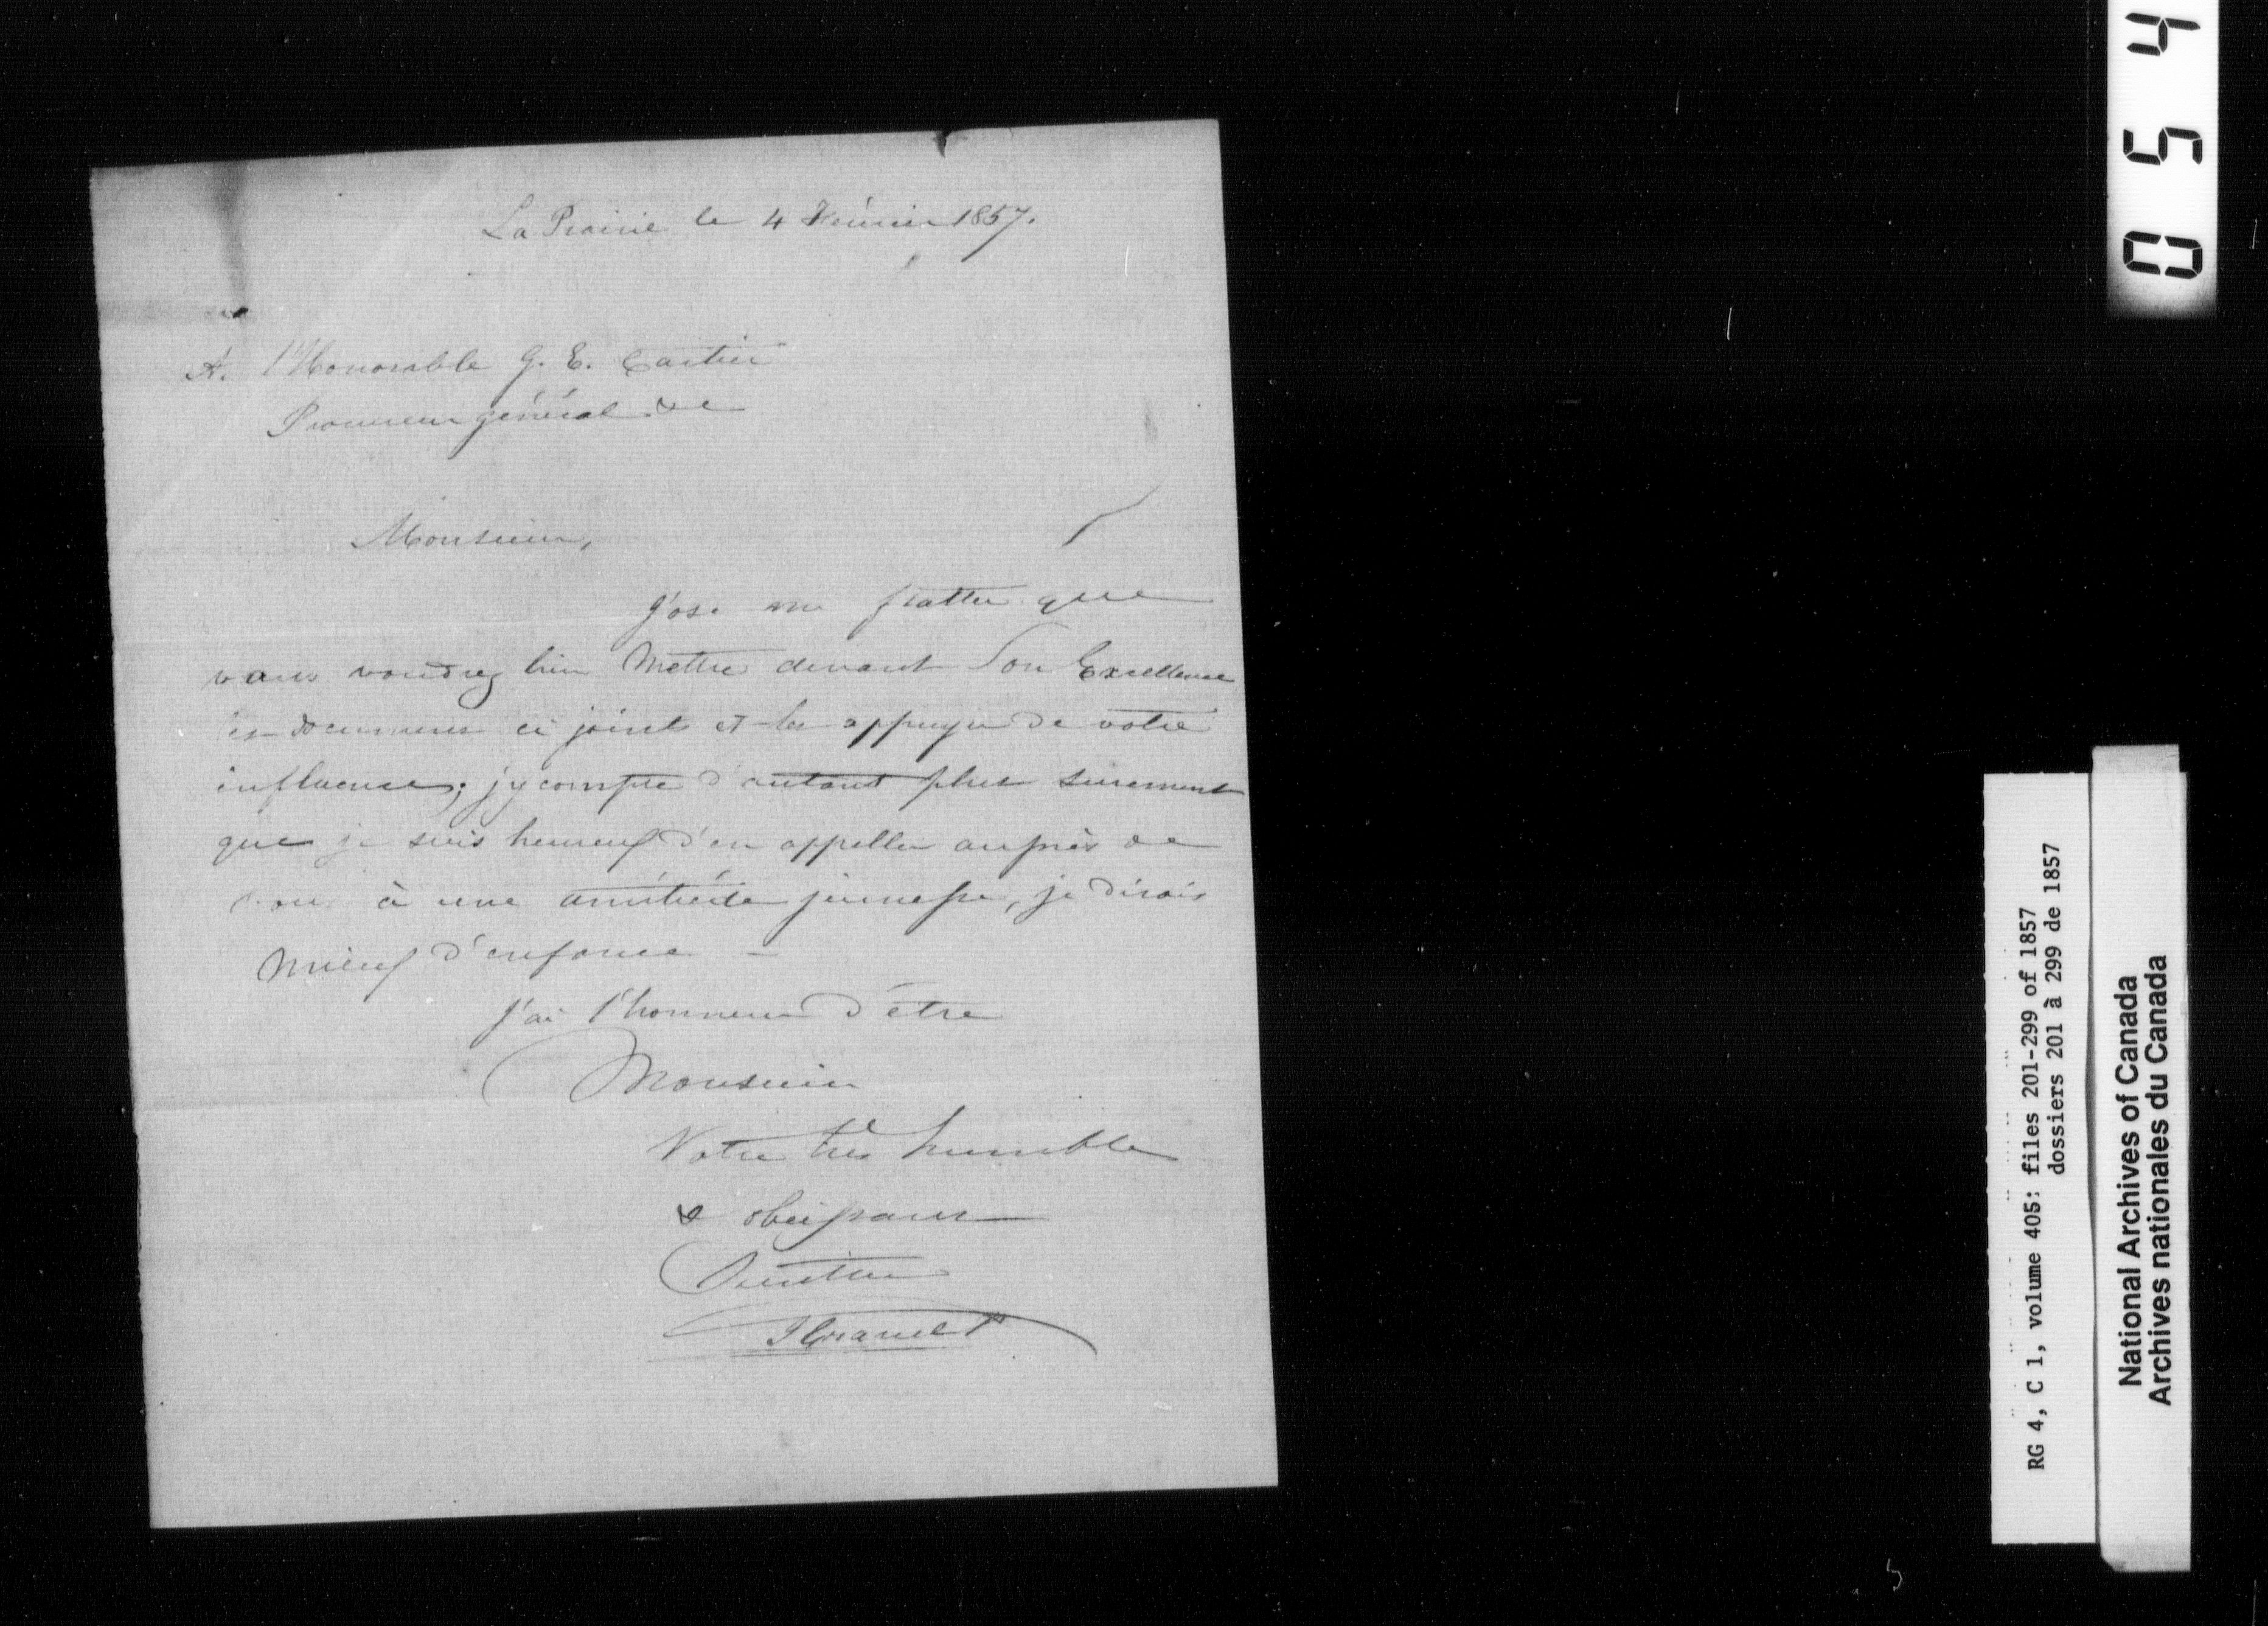 La Prairie le 4 Février 1857.
A. l'Honorable G. E. Cartier
Procureur général &c
Monsieur,
J'ose me flatter que
vous voudrez bien mettre devant Son Excellence
les documens ci joint et les appuyer de votre
influence; j'y compte d'autant plus surement
que je suis heureux d'en appeller auprès de
vous à une amitié de jeunesse, je dirais
mieux d'enfance -
J'ai l'honneur d'être
Monsieur
Votre très humble
& obeissant
Serviteur
4 5 0
RG 4, C 1, volume 405: files 201-299 of 1857
dossiers 201 à 299 de 1857
National Archives of Canada
Archives nationales du Canada